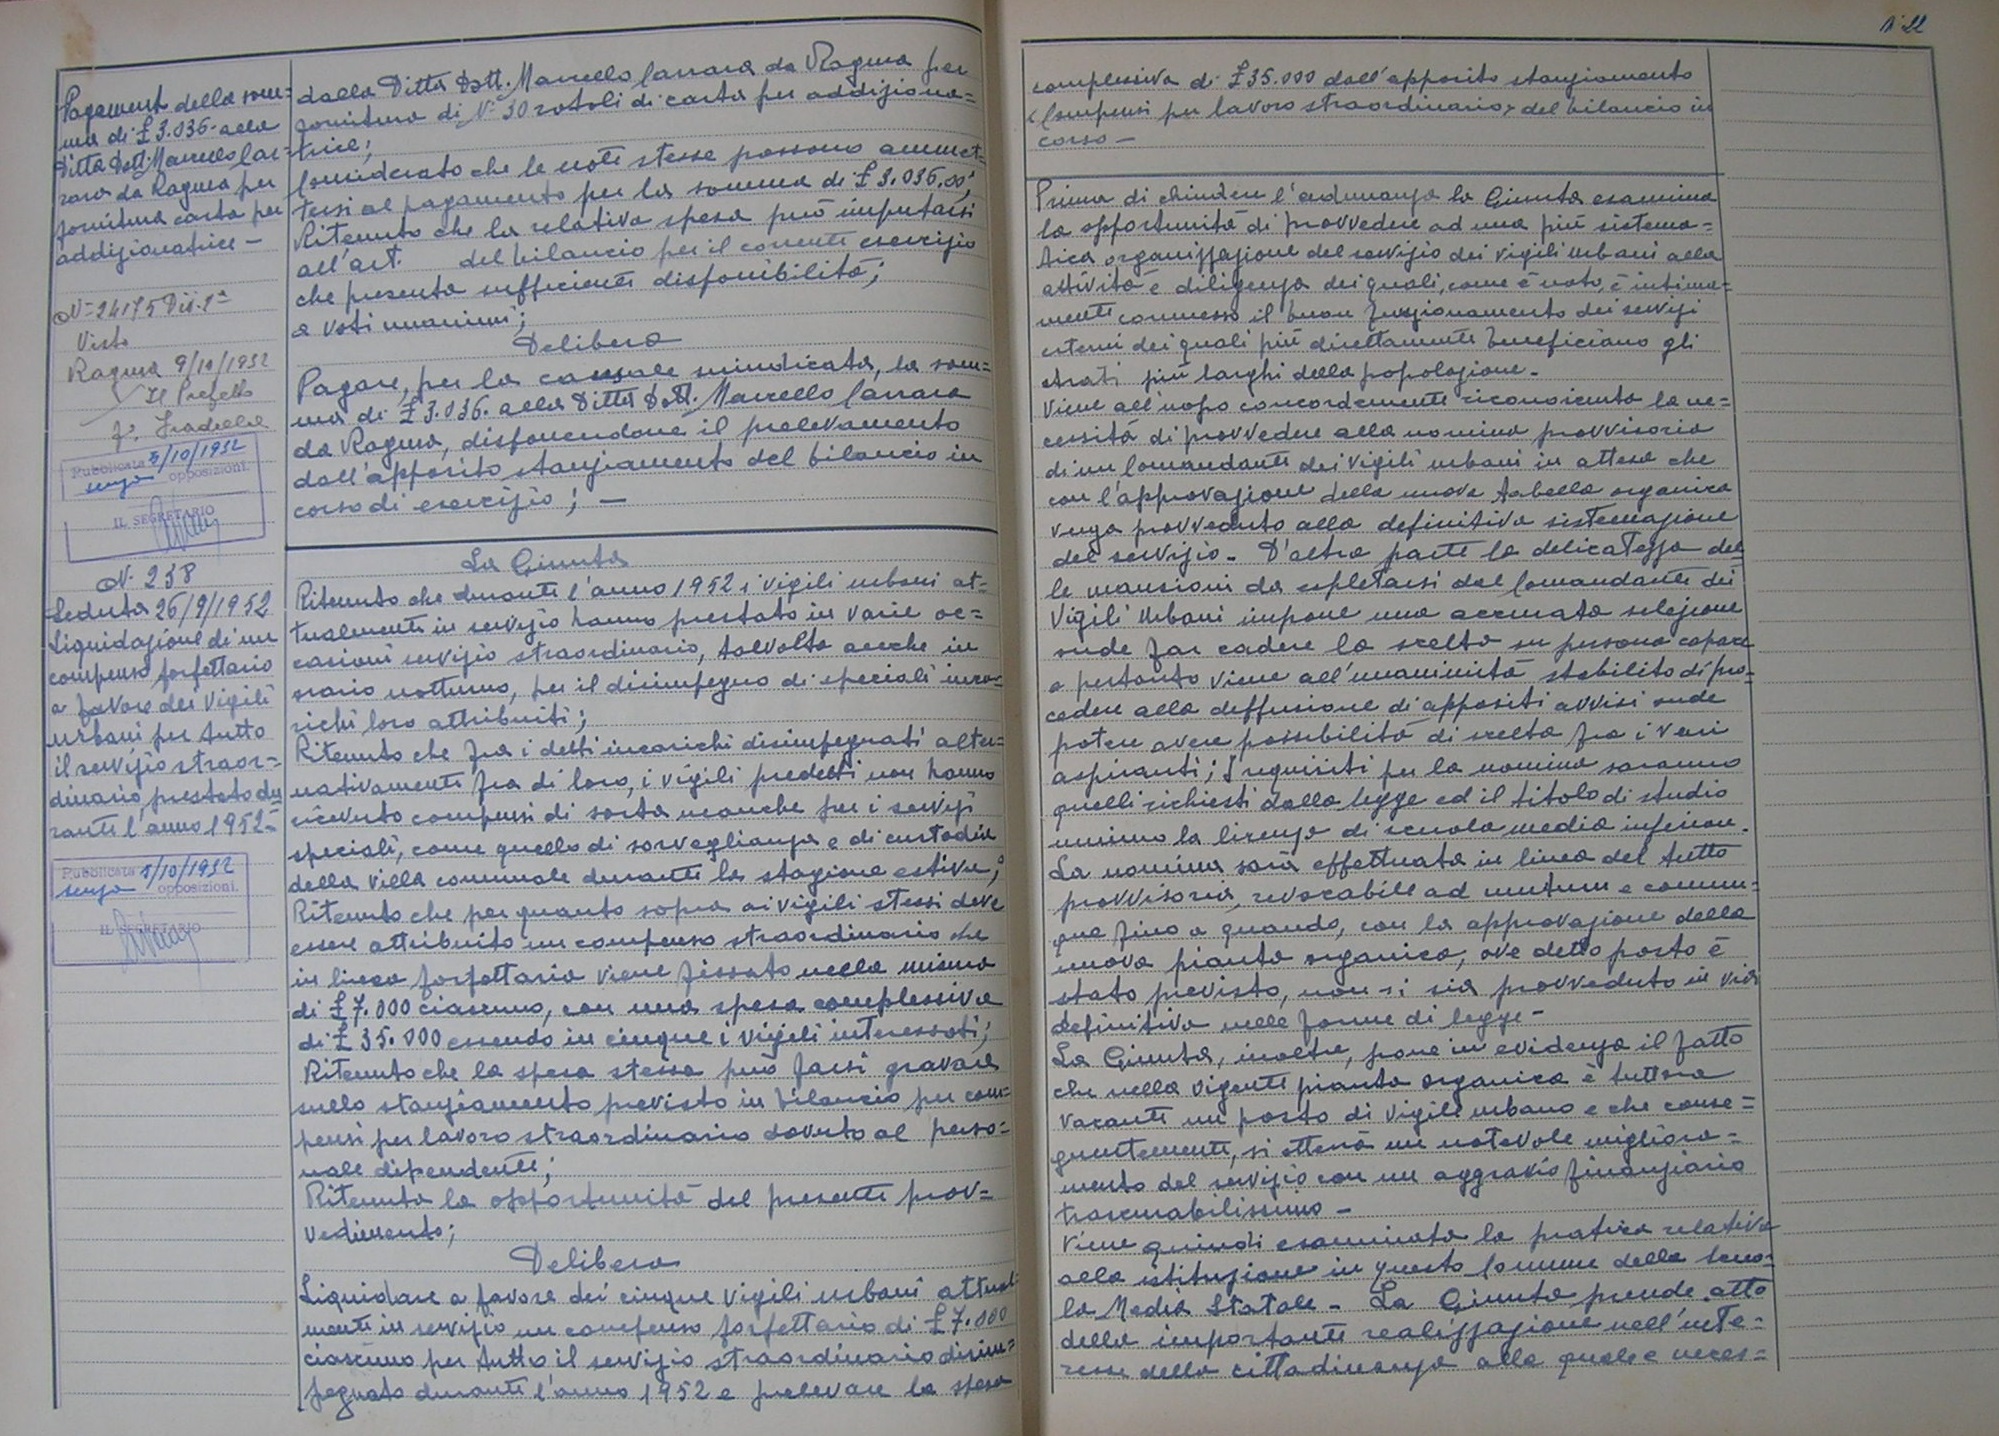 Pagamento della som=
ma di £ 3.036- alla
Ditta Dott. Marcello Car=
rara da Ragusa per
fornitura carta per
addizionatrice -
N= 24175 Div. 2ª
Visto
Ragusa 9/10/1952
Il Prefetto
f°
Pubblicata 5/10/1952
senza opposizioni.
IL SEGRETARIO
N. 238
Seduta 26/9/1952
Liquidazione di un
compenso forfettario
a favore dei vigili
urbani per tutto
il servizio straor=
dinario prestato du
rante l'anno 1952-
Pubblicata 5/10/1952
senza opposizioni.
IL SEGRETARIO
dalla Ditta Dott. Marcello Carrara da Ragusa per
fornitura di N° 30 rotoli di carta per addiziona=
trice;
Considerato che le note stesse possono ammet=
tersi al pagamento per la somma di £ 3.036.00;
Ritenuto che la relativa spesa può imputarsi
all'art. del bilancio per il corrente esercizio
che presenta sufficiente disponibilità;
a voti unanimi;
Delibera
Pagare, per la causale suindicata, la som=
ma di £ 3.036. alla Ditta Dott. Marcello Carrara
da Ragusa, disponendone il prelevamento
dall'apposito stanziamento del bilancio in
corso di esercizio; -
La Giunta
Ritenuto che durante l'anno 1952 i vigili urbani at=
tualmente in servizio hanno prestato in varie oc=
casioni servizio straordinario, talvolta anche in
orario notturno, per il disimpegno di speciali inca=
richi loro attribuiti;
Ritenuto che fra i detti incarichi disimpegnati alter=
nativamente fra di loro, i vigili predetti non hanno
ricevuto compensi di sorta neanche per i servizi
speciali, come quello di sorveglianza e di custodia
della villa comunale durante la stagione estiva;
Ritenuto che per quanto sopra ai vigili stessi deve
essere attribuito un compenso straordinario che
in linea forfettaria viene fissato nella misura
di £ 7.000 ciascuno, con una spesa complessiva
di £ 35.000 essendo in cinque i vigili interessati;
Ritenuto che la spesa stessa può farsi gravare
sullo stanziamento previsto in bilancio per com=
pensi per lavoro straordinario dovuto al perso=
nale dipendente;
Ritenuta la opportunità del presente prov=
vedimento;
Delibera
Liquidare a favore dei cinque vigili urbani attual
mente in servizio un compenso forfettario di £ 7.000
ciascuno per tutto il servizio straordinario disim=
pegnato durante l'anno 1952 e prelevare la spesa
N° 22
complessiva di £ 35.000 dall'apposito stanziamento
"Compensi per lavoro straordinario" del bilancio in
corso -
Prima di chiudere l'adunanza la Giunta esamina
la opportunità di provvedere ad una più sistema=
tica organizzazione del servizio dei vigili urbani alla
attività e diligenza dei quali, come è noto, è intima=
mente connesso il buon funzionamento dei servizi
esterni dei quali più direttamente beneficiano gli
strati più larghi della popolazione -
Viene all'uopo concordemente riconosciuta la ne=
cessità di provvedere alla nomina provvisoria
di un Comandante dei Vigili urbani in attesa che
con l'approvazione della nuova tabella organica
venga provveduto alla definitiva sistemazione
del servizio - D'altra parte la delicatezza del
le mansioni da espletarsi dal Comandante dei
Vigili Urbani impone una accurata selezione
onde far cadere la scelta su persona capace
e pertanto viene all'unanimità stabilito di pro=
cedere alla diffusione di appositi avvisi onde
potere avere possibilità di scelta fra i vari
aspiranti; I requisiti per la nomina saranno
quelli richiesti dalla legge ed il titolo di studio
minimo la licenza di scuola media inferiore.
La nomina sarà effettuata in linea del tutto
provvisoria, revocabile ad nutum e comun=
que fino a quando, con la approvazione della
nuova pianta organica, ove detto posto è
stato previsto, non si sia provveduto in via
definitiva nelle forme di legge -
La Giunta, inoltre, pone in evidenza il fatto
che nella vigente pianta organica è tuttora
vacante un posto di Vigile urbano e che conse=
guentemente, si otterrà un notevole migliora=
mento del servizio con un aggravio finanziario
trascurabilissimo -
Viene quindi esaminata la pratica relativa
alla istituzione in questo Comune della Scuo=
la Media Statale - La Giunta prende atto
della importante realizzazione nell'inte=
resse della cittadinanza alla quale è neces=